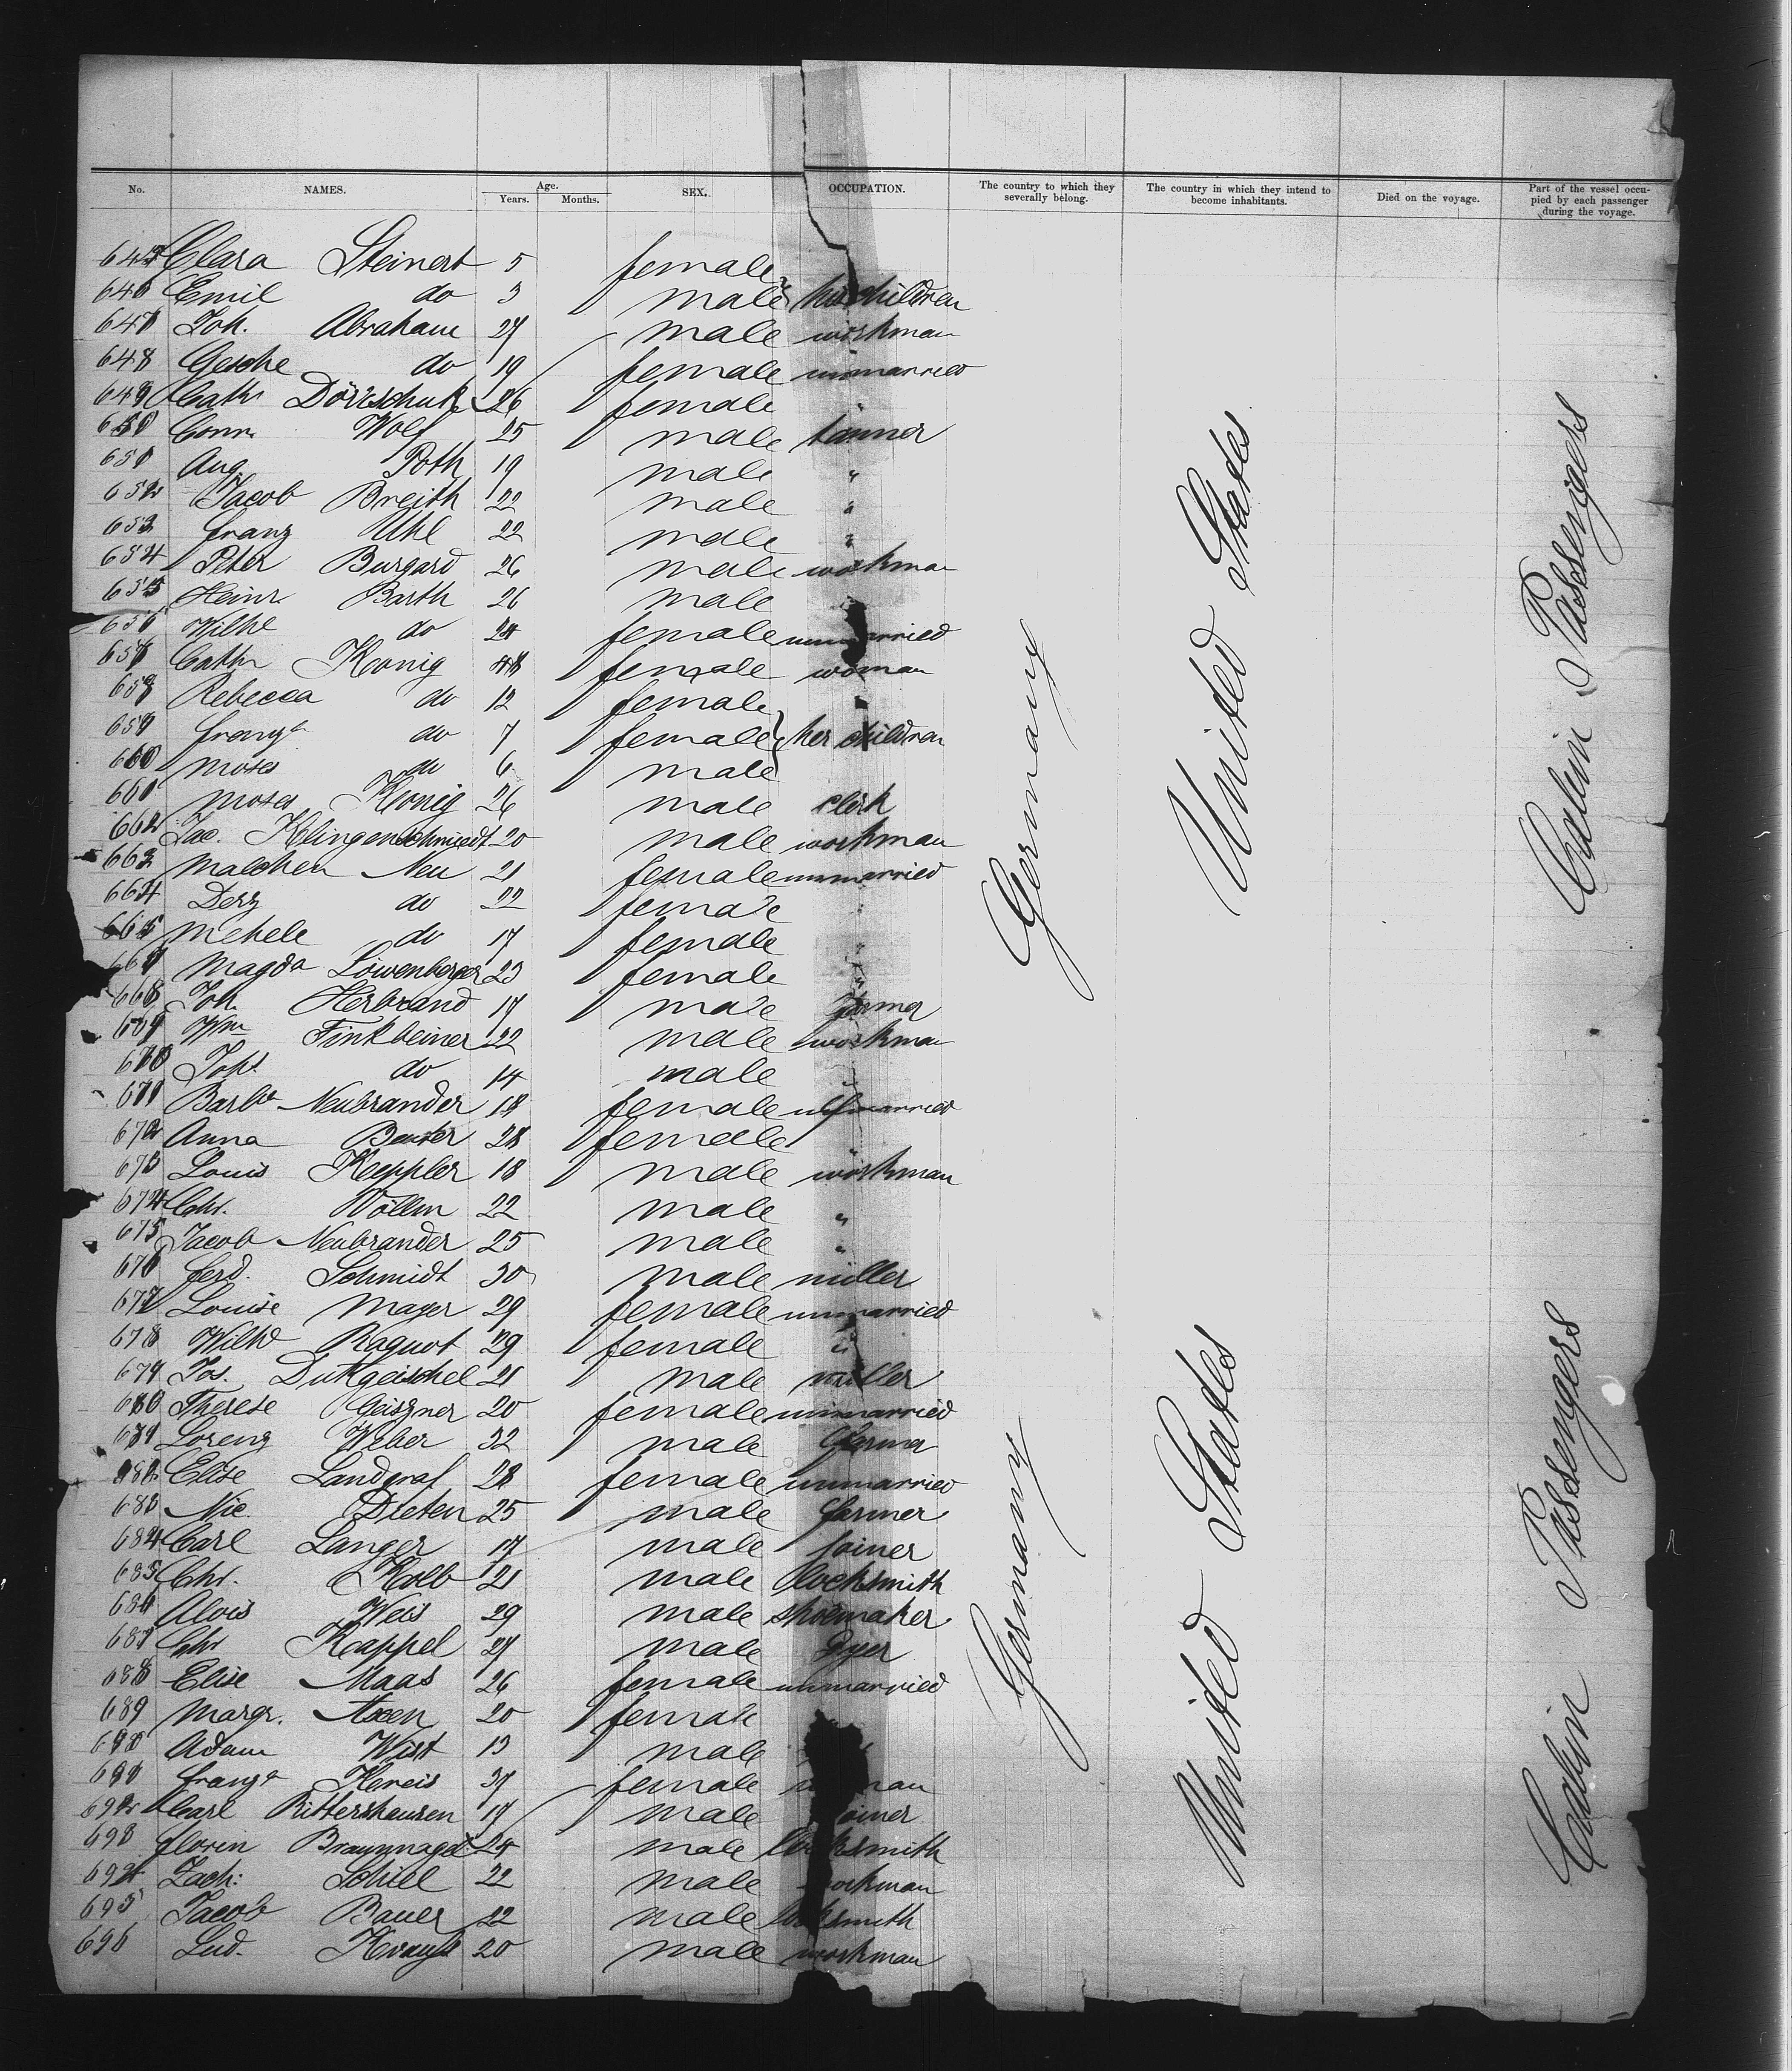 No. NAMES. Age. Years. Months. SEX. OCCUPATION. The country to which they severally belong. The country in which they intend to become inhabitants. Died on the voyage. Part of the vessel occupied by each passenger during the voyage.
645 Clara Steinert 5 female
646 Emil do 3 male his children
647 Joh. Abraham 27 male workman
648 Gesche do 19 female unmarried
649 Cath. 26 female "
650 Conr. Wolf 25 male tanner
651 Aug. Poth 19 male "
652 Jacob Breith 22 male "
653 Franz Uhl 22 male "
654 Peter Burgard 26 male workman
655 Heinr. Barth 26 male
656 Wilhe do 24 female unmarried
657 Cathr Konig 48 female woman
658 Rebecca do 12 female
659 Franza do 7 female her children
660 Moses do 6 male
661 Moses Konig 26 male clerk
662 Jac. Klingenschmiedt 20 male workman
663 Malchen Neu 21 female unmarried
664 Derz do 22 female "
665 Mehele do 17 female "
667 Magda Löwenberger 23 female "
668 Joh. Herbrand 17 male farmer
669 Wm Finkbeiner 22 male workman
670 Joh. do 14 male
671 Barba Neubrander 18 female unmarried
672 Anna 28 female
673 Louis Keppler 18 male workman
674 Chr. Völlm 22 male "
675 Jacob Neubrander 25 male "
676 Ferd. Schmidt 30 male miller
677 Louise Mayer 29 female unmarried
678 Wilhe Raquot 29 female "
679 Jos. 21 male miller
680 Therese Geiszner 20 female unmarried
681 Lorenz Weber 32 male farmer
682 Elise Landgraf 28 female unmarried
683 Nic. Dieten 25 male farmer
684 Carl Langer 17 male joiner
685 Chr. Kolb 21 male locksmith
686 Alois Weis 29 male shoemaker
687 Chr Kappel 27 male dyer
688 Elise Maas 26 female unmarried
689 Margr. 20 female
690 Adam Wist 13 male
691 Franza 37 female woman
692 Carl Rittershausen 17 male joiner
693 Florin Braunnagel 24 male locksmith
694 Zach. Schiel 22 male workman
695 Jacob Bauer 22 male locksmith
696 Lud. 20 male workman
Germany
United States
Cabin Passengers
Germany
United States
Cabin Passengers